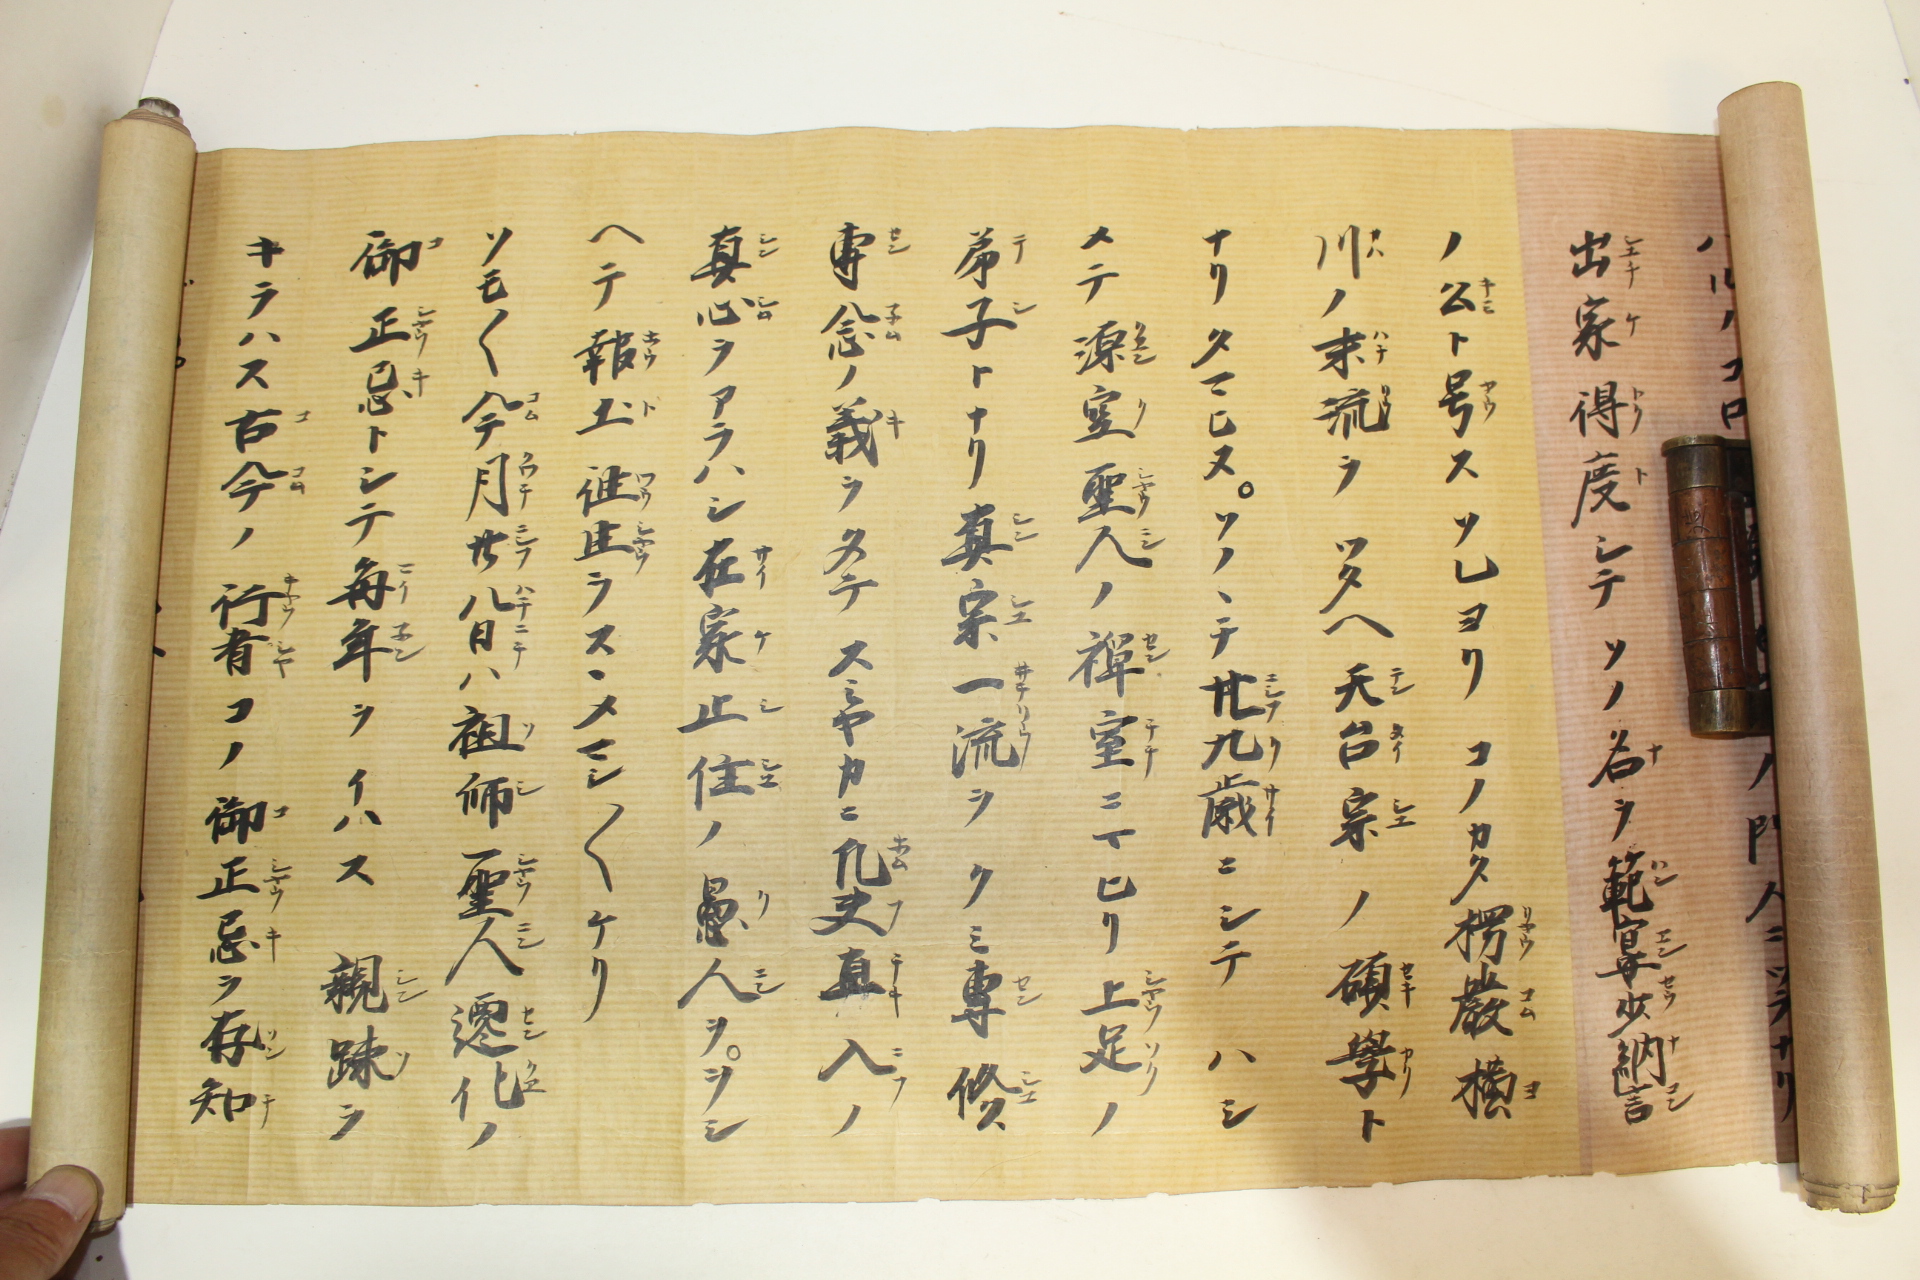 出家得度シテソノ名ヲ範宴少納言
ノ公ト号スソレヨリコノカタ楞厳横
川ノ末流ヲツタヘ天台宗ノ碩學ト
ナリタマヒヌ。ソノヽチ廿九歳ニシテハシ
メテ源空聖人ノ禪室ニマヒリ上足ノ
弟子トナリ真宗一流ヲクミ専修
専念ノ義ヲタテスミヤカニ凡夫真入ノ
真心ヲアラハシ在家止住ノ愚人ヲ。ヲシ
ヘテ報土徃生ヲスヽメマシ〱ケリ
ソモ〱今月廿八日ハ祖師聖人遷化ノ
御正忌トシテ毎年ヲイハス親疎ヲ
キラハス古今ノ行者コノ御正忌ヲ存知